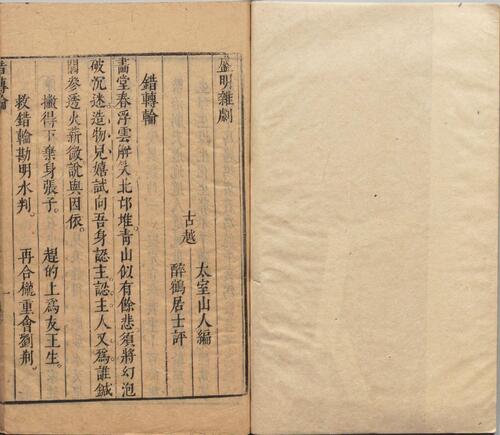 盛明雜劇
古越 太室山人編
醉鶴居士評
錯轉輪
畵堂春浮雲解大北邙堆青山似有餘悲須將幻泡
破沉迷造物兒嬉試向吾身認主認主人又爲誰鍼
關參透火薪微說與因依
撇得下棄身張子。 趕的上爲友王生。
救錯輪勘明水判。 再合儱重會劉荆。
錯轉輪